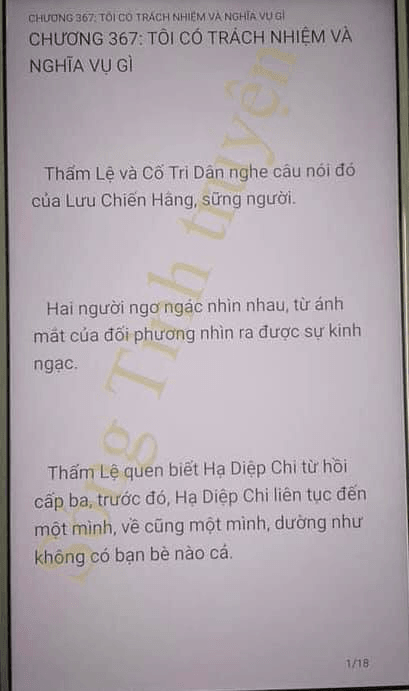 CHƯƠNG 367: TÔI CÓ TRÁCH NHIỆM VÀ NGHĨA VỤ GÌ
CHƯƠNG 367: TÔI CÓ TRÁCH NHIỆM VÀ
NGHĨA VỤ GÌ
Thẩm Lệ và Cố Tri Dân nghe câu nói đó
của Lưu Chiến Hằng, sững người.
Hai người ngơ ngác nhìn nhau, từ ánh
mắt của đối phương nhìn ra được sự kinh
ngạc.
Thẩm Lệ quen biết Hạ Diệp Chi từ hồi
cấp ba, trước đó, Hạ Diệp Chi liên tục đến
một mình, về cũng một mình, dường như
không có bạn bè nào cả.
Sóng Tình truyện
1/18